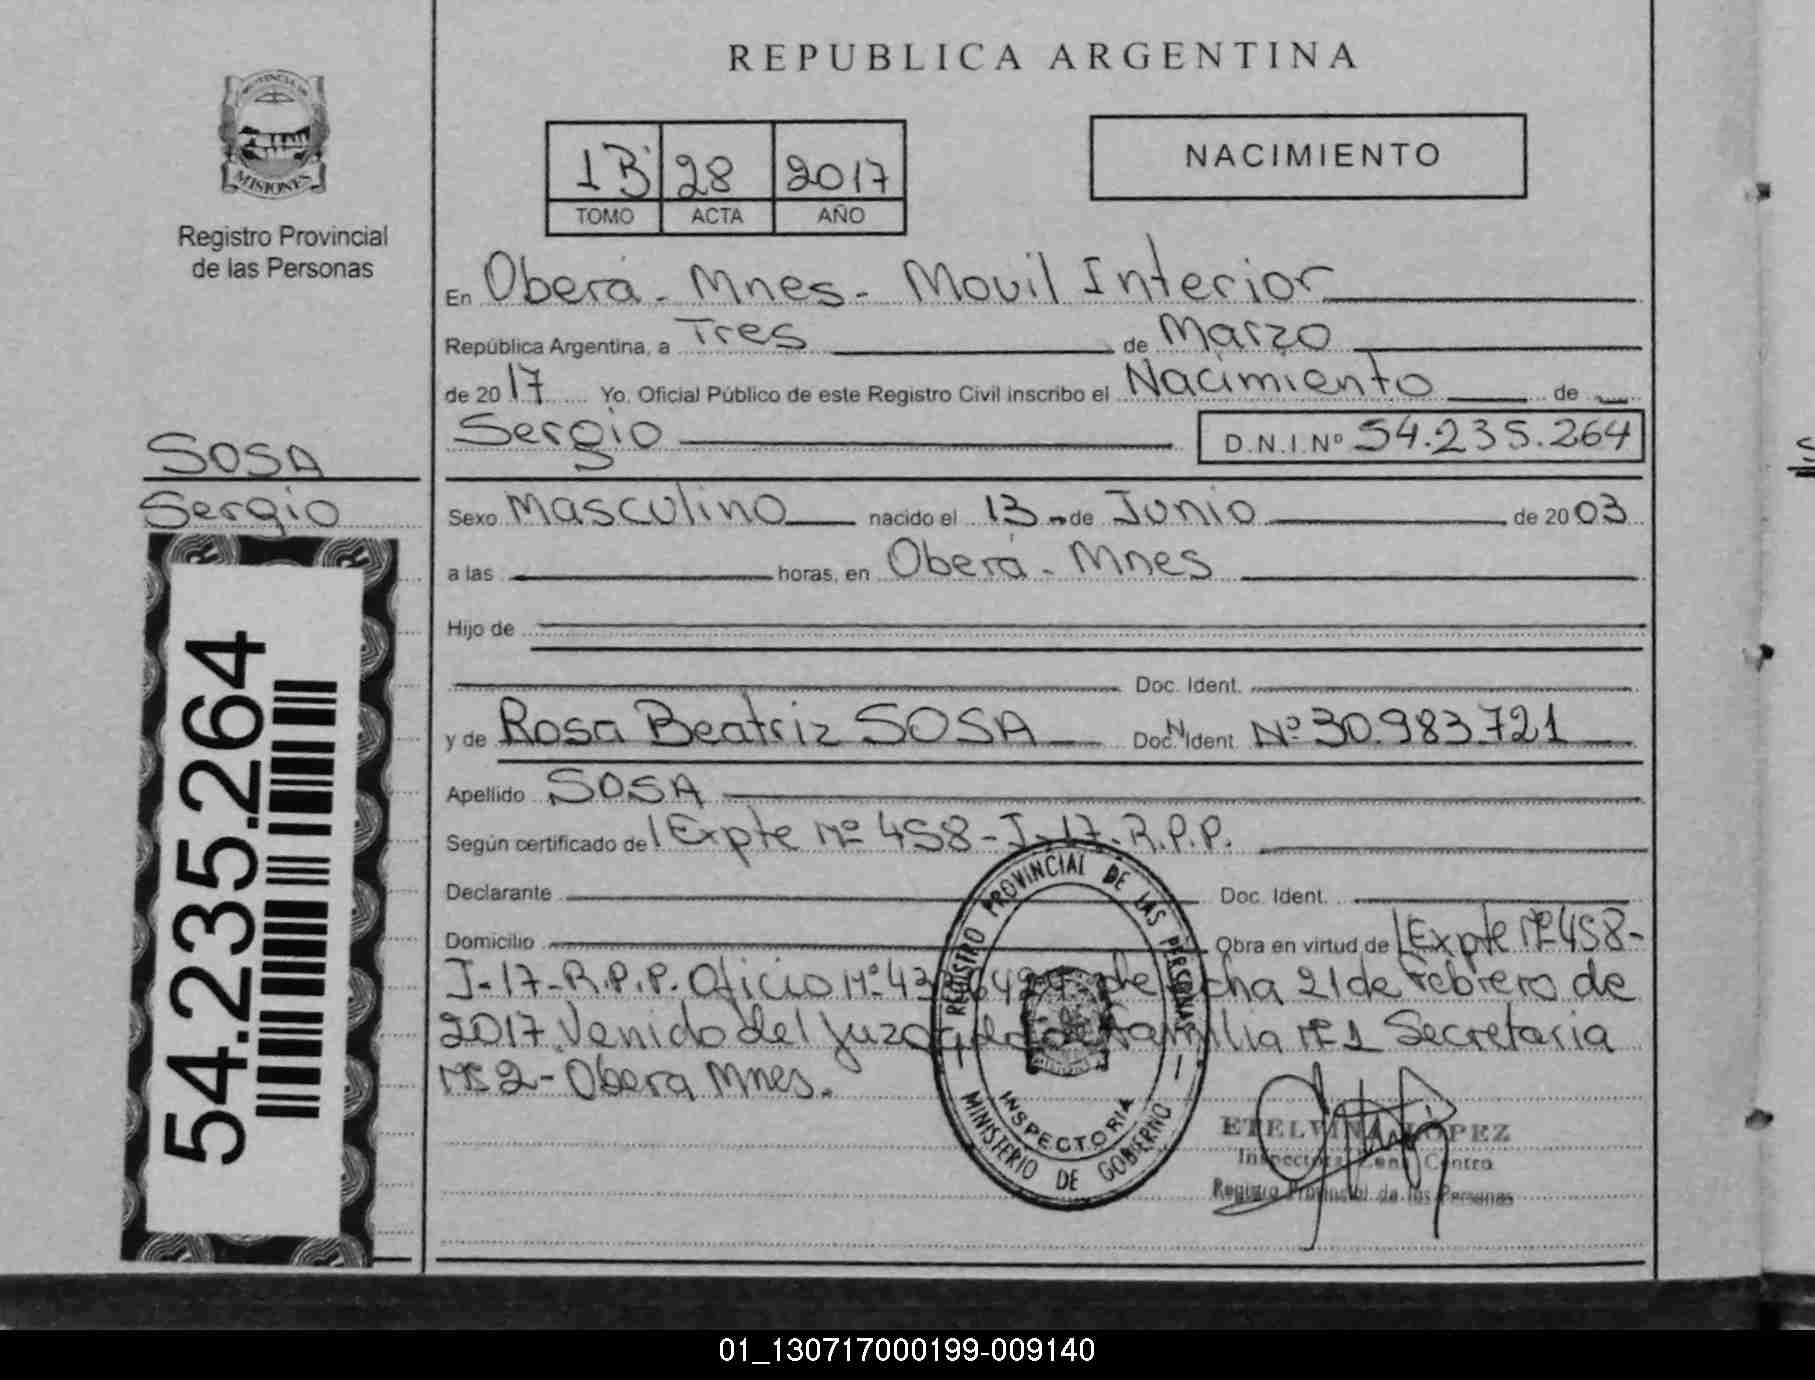 REPUBLICA ARGENTINA
PROVINCIA DE
MISIONES
Registro Provincial
de las Personas
1B' 28 2017
TOMO ACTA AÑO
NACIMIENTO
En Oberá - Mnes - Movil Interior
República Argentina, a Tres de Marzo
de 2017 Yo, Oficial Público de este Registro Civil inscribo el Nacimiento de
Sergio D.N.I.Nº 54.235.264
SOSA
Sergio
Sexo Masculino nacido el 13 de Junio de 2003
a las horas, en Oberá - Mnes
Hijo de
Doc. Ident.
y de Rosa Beatriz SOSA Doc. N Ident. Nº 30.983.721
Apellido SOSA
Según certificado de Expte Nº 458-J-17-R.P.P.
Declarante Doc. Ident.
Domicilio Obra en virtud de Expte Nº 458-
J-17-R.P.P. Oficio Nº 21 de Febrero de
2017 Venido del Juzgado de Familia Nº 1 Secretaria
Nº 2 - Obera Mnes.
54.235.264
REGISTRO PROVINCIAL DE LAS PERSONAS
INSPECTORIA
MINISTERIO DE GOBIERNO
ETELVINA LOPEZ
Inspectora Zona Centro
Registro Provincial de las Personas
01_130717000199-009140